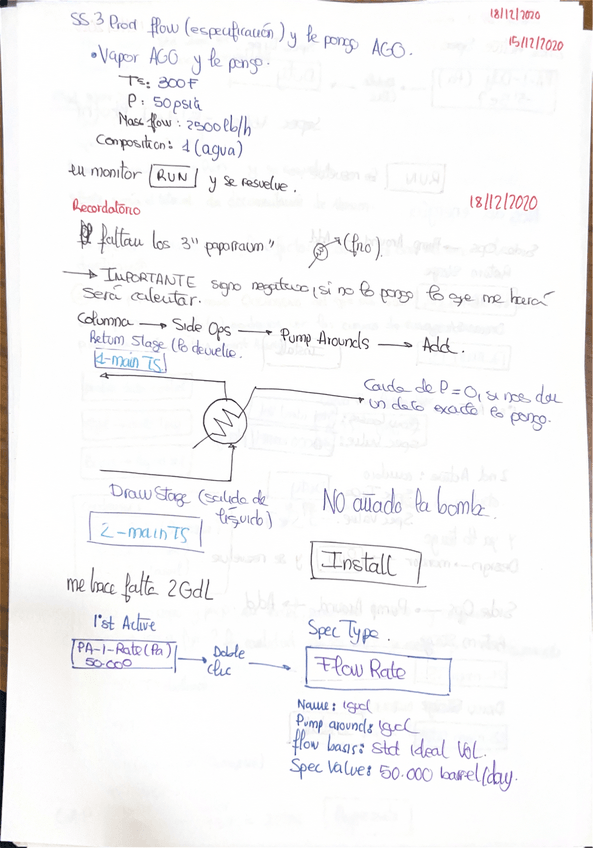 18/12/2020
SS 3 Prod flow (especificación) y le pongo AGO.
15/12/2020
• Vapor AGO y le pongo.
Tº: 300 F
P: 50 psia
Mass flow: 2500 lb/h
Composition: 1 (agua)
en monitor RUN y se resuelve.
18/12/2020
Recordatorio
faltan los 3 "
(frío).
→ IMPORTANTE signo negativo, si no lo pongo lo que me hará
será calentar.
Columna → Side Ops → Pump Arounds → Add.
Return Stage (lo devuelve.
1-main TS
Caída de P = 0, si nos dan
un dato exacto lo pongo.
Draw Stage (salida de
líquido)
2-main TS
NO añado la bomba.
Install
me hace falta 2 GdL
1'st Active
PA-1-Rate (Pa)
50.000
→ Doble
clic →
Spec Type.
Flow Rate
Name: igual
Pump arounds: igual
flow basis: std ideal Vol.
Spec Value: 50.000 barrel/day.